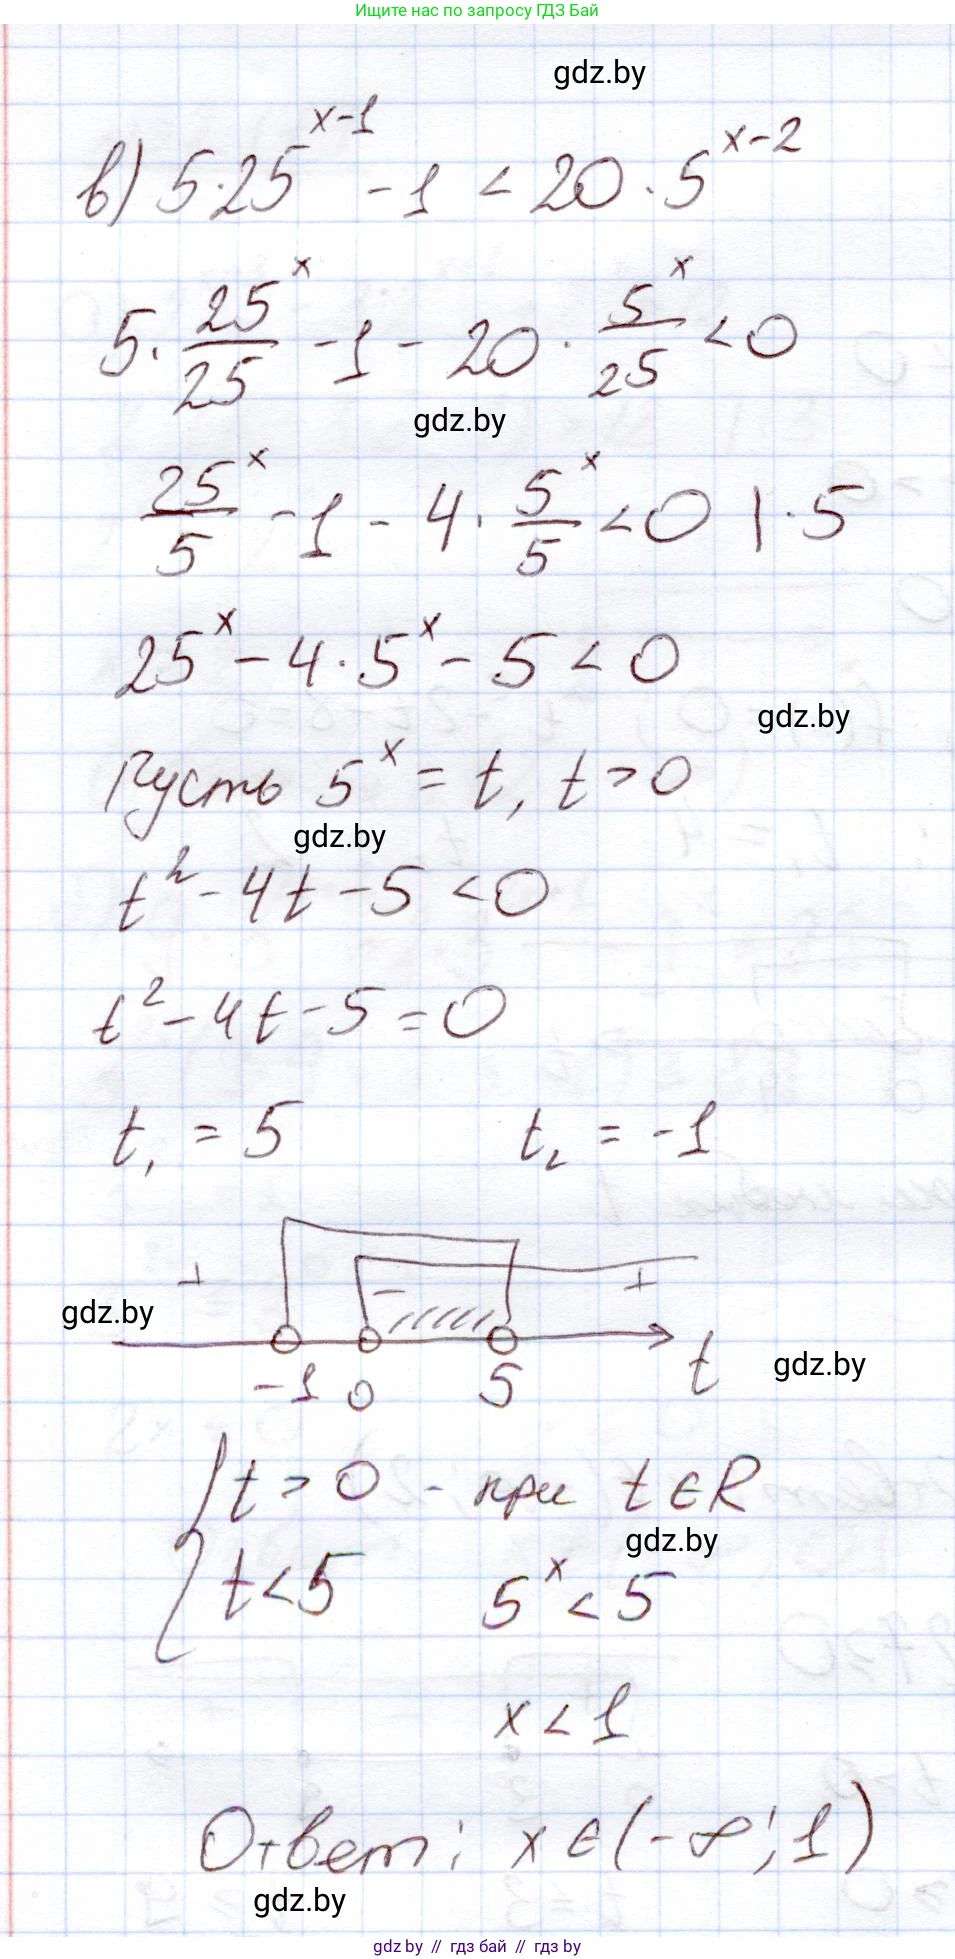 Ищите нас по запросу ГДЗ Бай
gdz.by
в) 5·25^(x-1) - 1 < 20·5^(x-2)
5· 25^x/25 - 1 - 20· 5^x/25 < 0
gdz.by
25^x/5 - 1 - 4· 5^x/5 < 0 |·5
25^x - 4·5^x - 5 < 0
gdz.by
Пусть 5^x = t, t > 0
gdz.by
t² - 4t - 5 < 0
t² - 4t - 5 = 0
t₁ = 5 t₂ = -1
+ - +
gdz.by
-1 0 5 t
gdz.by
{ t > 0 - при t ∈ R
gdz.by
t < 5 5^x < 5
x < 1
Ответ: x ∈ (-∞; 1)
gdz.by
gdz.by // гдз бай // gdz.by